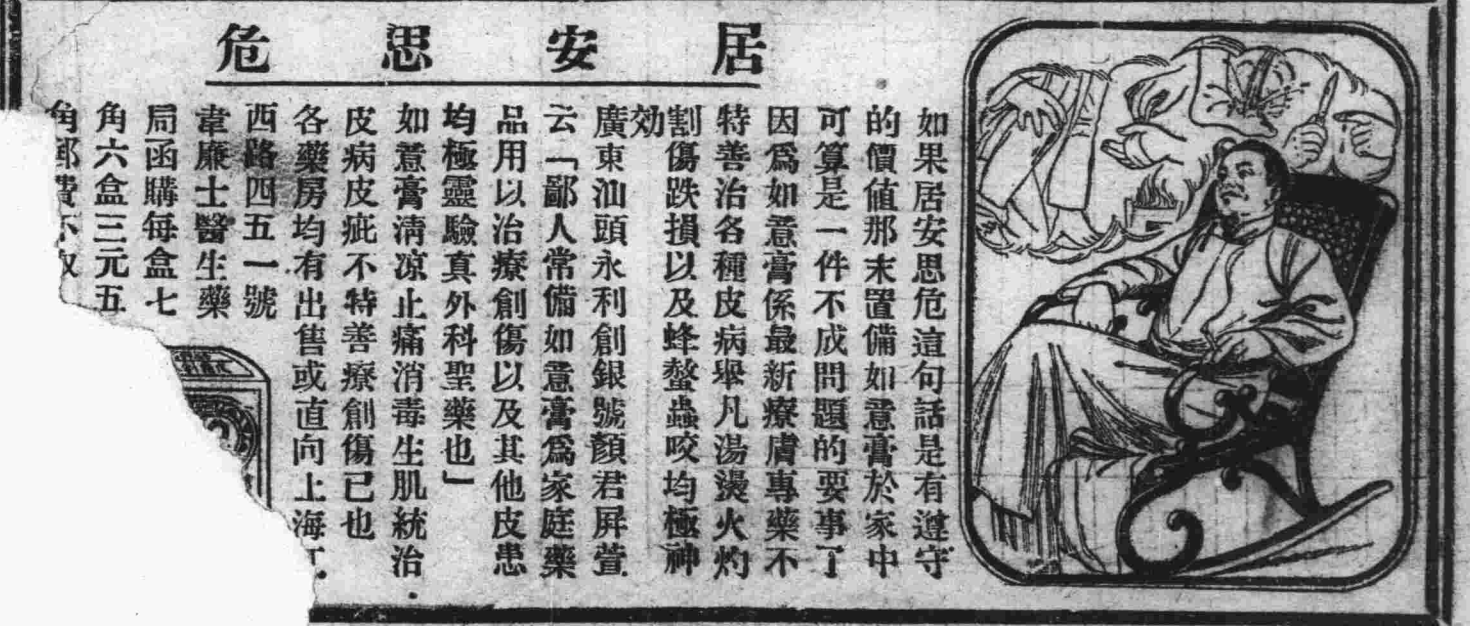 居安思危
如果居安思危這句話是有遵守
的價値那末置備如意膏於家中
可算是一件不成問題的要事了
因爲如意膏係最新療膚專藥不
特善治各種皮病舉凡湯燙火灼
割傷跌損以及蜂螫蟲咬均極神
効
廣東汕頭永利創銀號顏君屛萱
云「鄙人常備如意膏爲家庭藥
品用以治療創傷以及其他皮患
均極靈驗真外科聖藥也」
如意膏淸凉止痛消毒生肌統治
皮病皮疵不特善療創傷已也
各藥房均有出售或直向上海江
西路四五一號
韋廉士醫生藥
局函購每盒七
角六盒三元五
角郵費不收